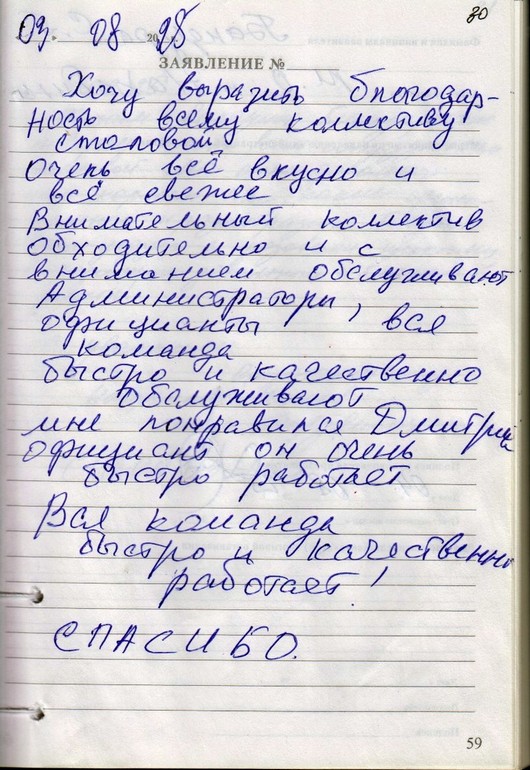 30
03. 08 2025
ЗАЯВЛЕНИЕ №
Хочу выразить благодар-
ность всему коллективу
столовой
очень всё вкусно и
всё свежее
Внимательный коллектив
обходительно и с
вниманием обслуживают
Администраторы,
официанты вся
команда
быстро и качественно
обслуживают
мне понравился Дмитрий
официант он очень
быстро работает
Вся команда
быстро и качественно
работает!
СПАСИБО.
59